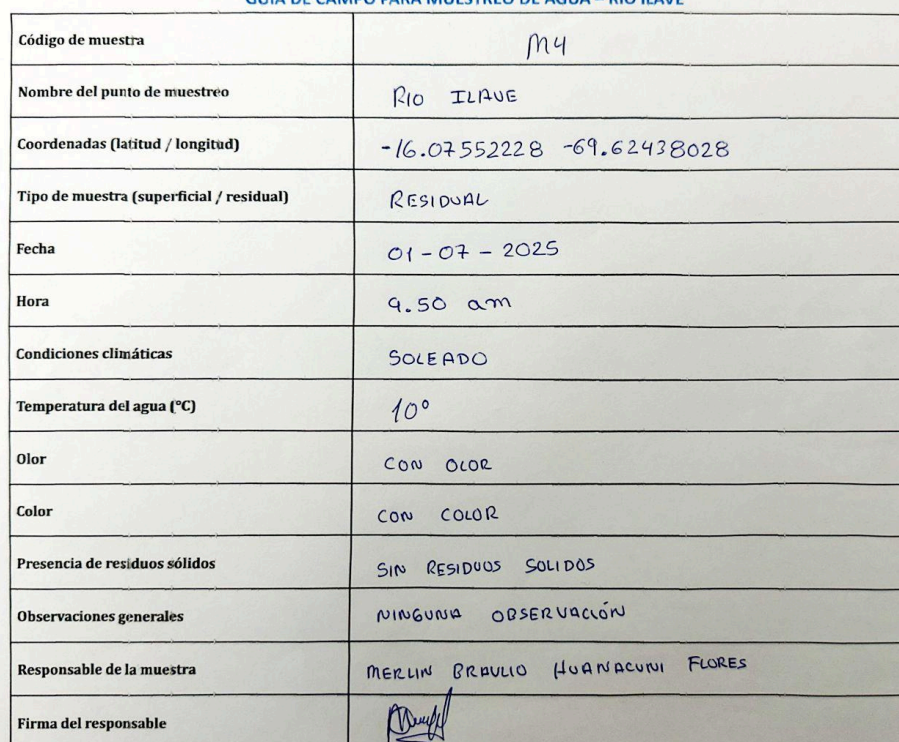 GUIA DE CAMPO PARA MUESTREO DE AGUA – RIO ILAVE
Código de muestra M4
Nombre del punto de muestreo RIO ILAVE
Coordenadas (latitud / longitud) -16.07552228 -69.62438028
Tipo de muestra (superficial / residual) RESIDUAL
Fecha 01-07-2025
Hora 9.50 am
Condiciones climáticas SOLEADO
Temperatura del agua (°C) 10°
Olor CON OLOR
Color CON COLOR
Presencia de residuos sólidos SIN RESIDUOS SOLIDOS
Observaciones generales NINGUNA OBSERVACIÓN
Responsable de la muestra MERLIN BRAULIO HUANACUNI FLORES
Firma del responsable